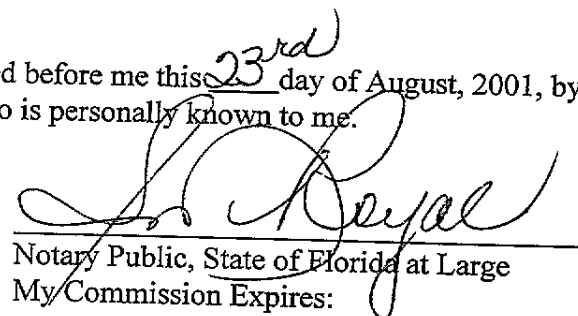 d before me this 23rd day of August, 2001, by
o is personally known to me.
Royal
Notary Public, State of Florida at Large
My Commission Expires: